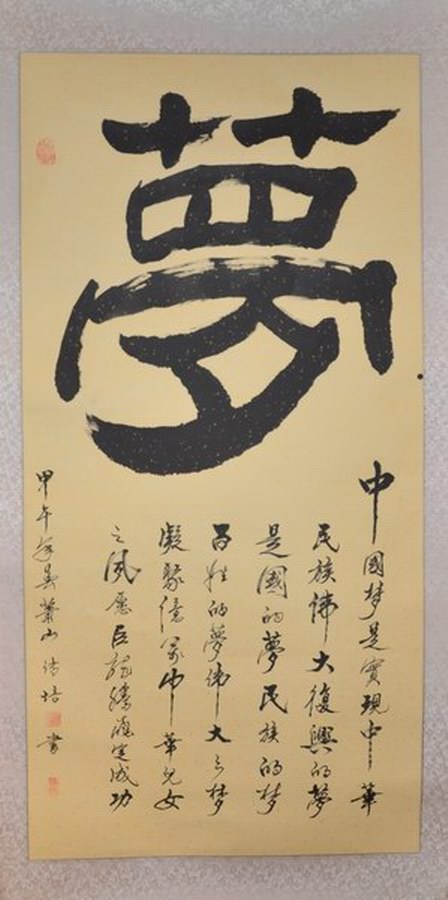 夢
中國梦是實現中華
民族偉大復興的夢
是國的夢民族的梦
百姓的夢偉大之梦
凝聚億萬中華兒女
之夙愿巨龍騰飛定成功
甲午年 蕭山 培 書